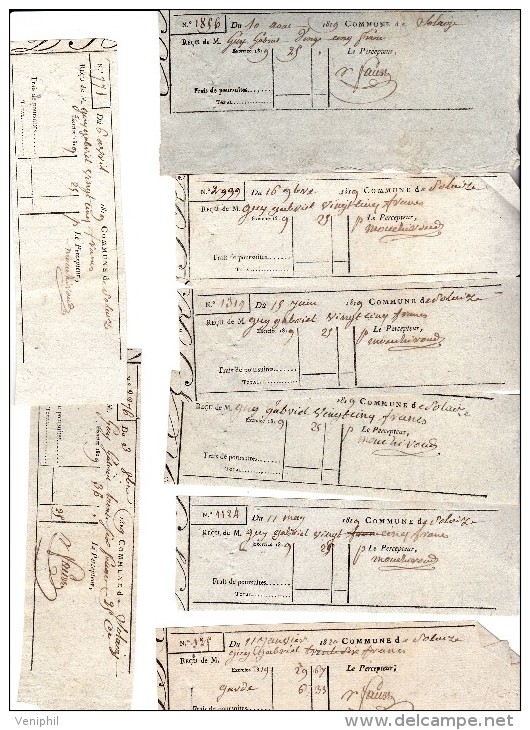 N.° 1856 Du 10 aout 1819 COMMUNE de Solaize
Reçu de M. Guy Gabriel Vingt cinq francs
Exercice 1819 25
Le Percepteur,
Frais de poursuites
TOTAL
N.° 771 Du 6 avril 1819 COMMUNE de Solaize
Reçu de M. guy gabriel vingt cinq francs
Exercice 1819 25 p Le Percepteur,
Frais de poursuites
TOTAL
N.° 2999 Du 16 9bre 1819 COMMUNE de Solaize
Reçu de M. guy gabriel vingt cinq francs
Exercice 1819 25 p Le Percepteur,
Frais de poursuites
TOTAL
N.° 1319 Du 15 Juin 1819 COMMUNE de Solaize
Reçu de M. guy gabriel vingt cinq francs
Exercice 1819 25 p Le Percepteur,
Frais de poursuites
TOTAL
1819 COMMUNE de Solaize
Reçu de M. guy gabriel vingt cinq francs
Exercice 1819 25 p Le Percepteur,
Frais de poursuites
TOTAL
Du 23 1819 COMMUNE de Solaize
Guy Gabriel
Exercice 1819 36
Le Percepteur,
N.° 1124 Du 11 may 1819 COMMUNE de Solaize
Reçu de M. guy gabriel vingt cinq francs
Exercice 1819 25 p Le Percepteur,
Frais de poursuites
TOTAL
Du 11 Janvier 1820 COMMUNE de Solaize
Reçu de M. guy Gabriel trente six francs
Exercice 1819 29 67
Le Percepteur,
garde 6 33
Veniphil
delcampe.net